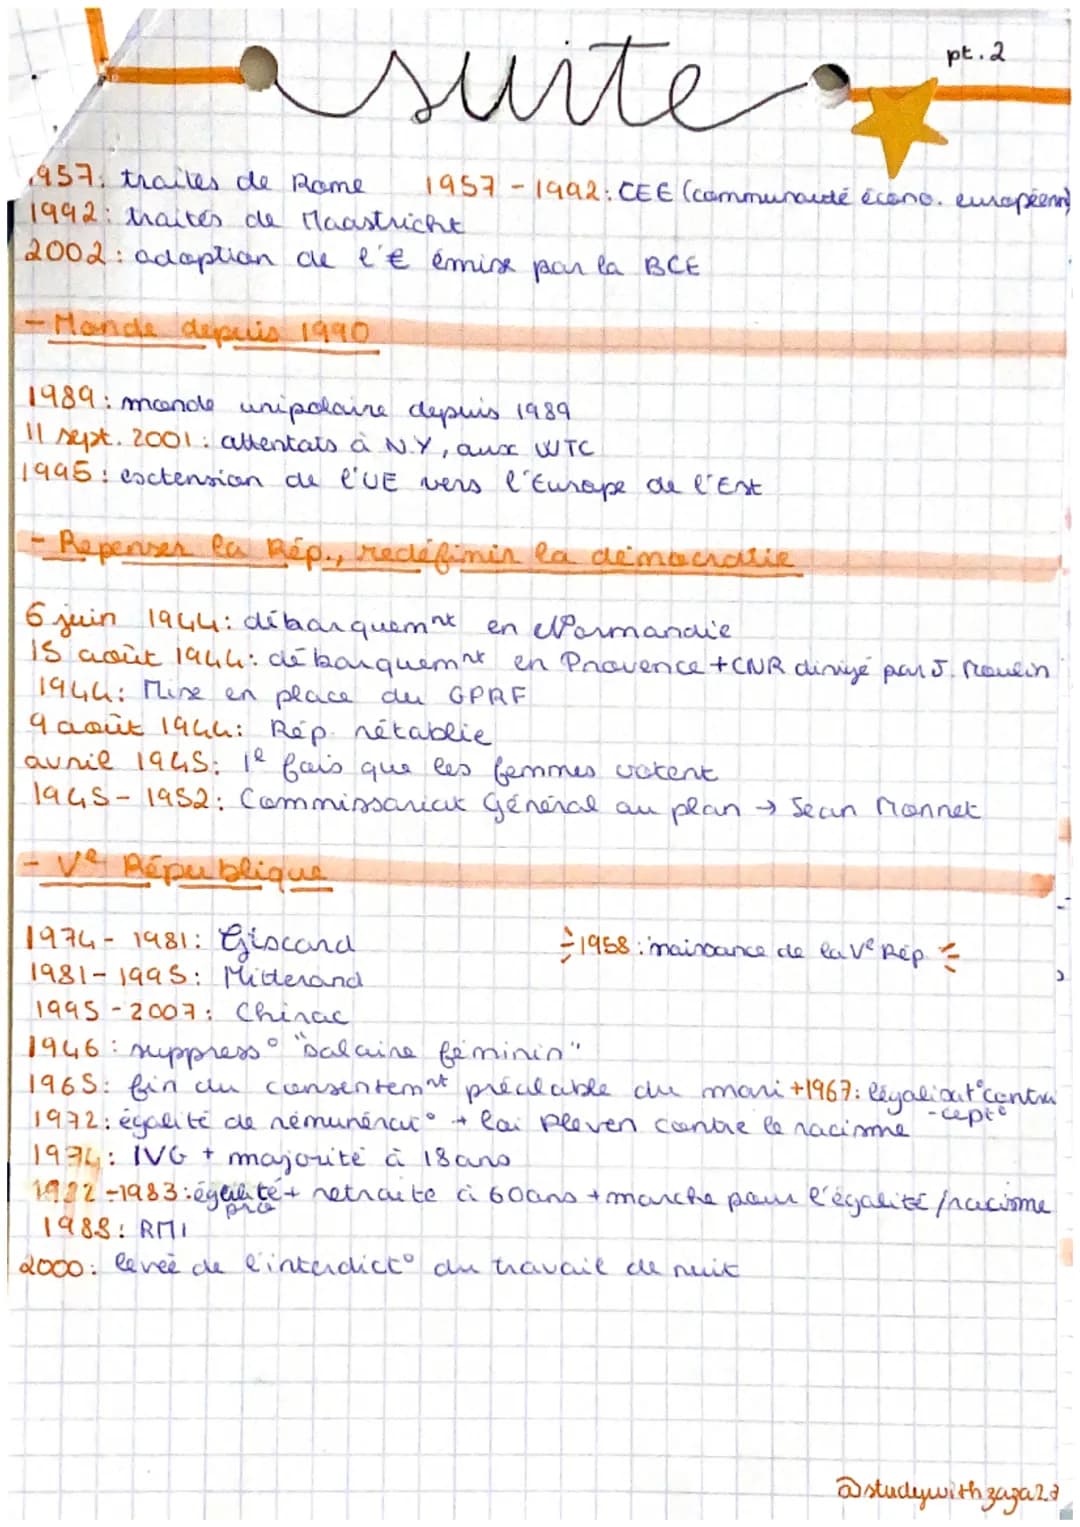 suite
pt.2
1957: traités de Rome 1957-1992: CEE (communauté écono. européenn)
1992: traités de Maastricht
2002: adoption de l'€ émise par la BCE
- Monde depuis 1990
1989: monde unipolaire depuis 1989
11 sept. 2001: attentats à N.Y, aux WTC
1995: esctension de l'UE vers l'Europe de l'Est
- Repenser la Rép., redéfinir la démocratie
6 juin 1944: débarquemnt en Normandie
15 août 1944: débarquemnt en Provence + CNR dirigé par J. Moulin
1944: Mise en place du GPRF
9 août 1944: Rép. rétablie
avril 1945: 1e fois que les femmes votent
1945-1952: Commissariat Général au plan → Jean Monnet
- Ve République
1974-1981: Giscard 1958: naissance de la Ve Rép
1981-1995: Mitterand
1995-2007: Chirac
1946: suppress° "salaire féminin"
1965: fin du consentemnt préalable du mari +1967: légalisat° contra
-cept°
1972: égalité de rémunérat° + loi Pleven contre le racisme
1974: IVG + majorité à 18ans
1982-1983: égalité + retraite à 60ans + marche pour l'égalité/racisme
pro
1988: RMI
2000: levée de l'interdict° du travail de nuit
@studywithzaza2.0